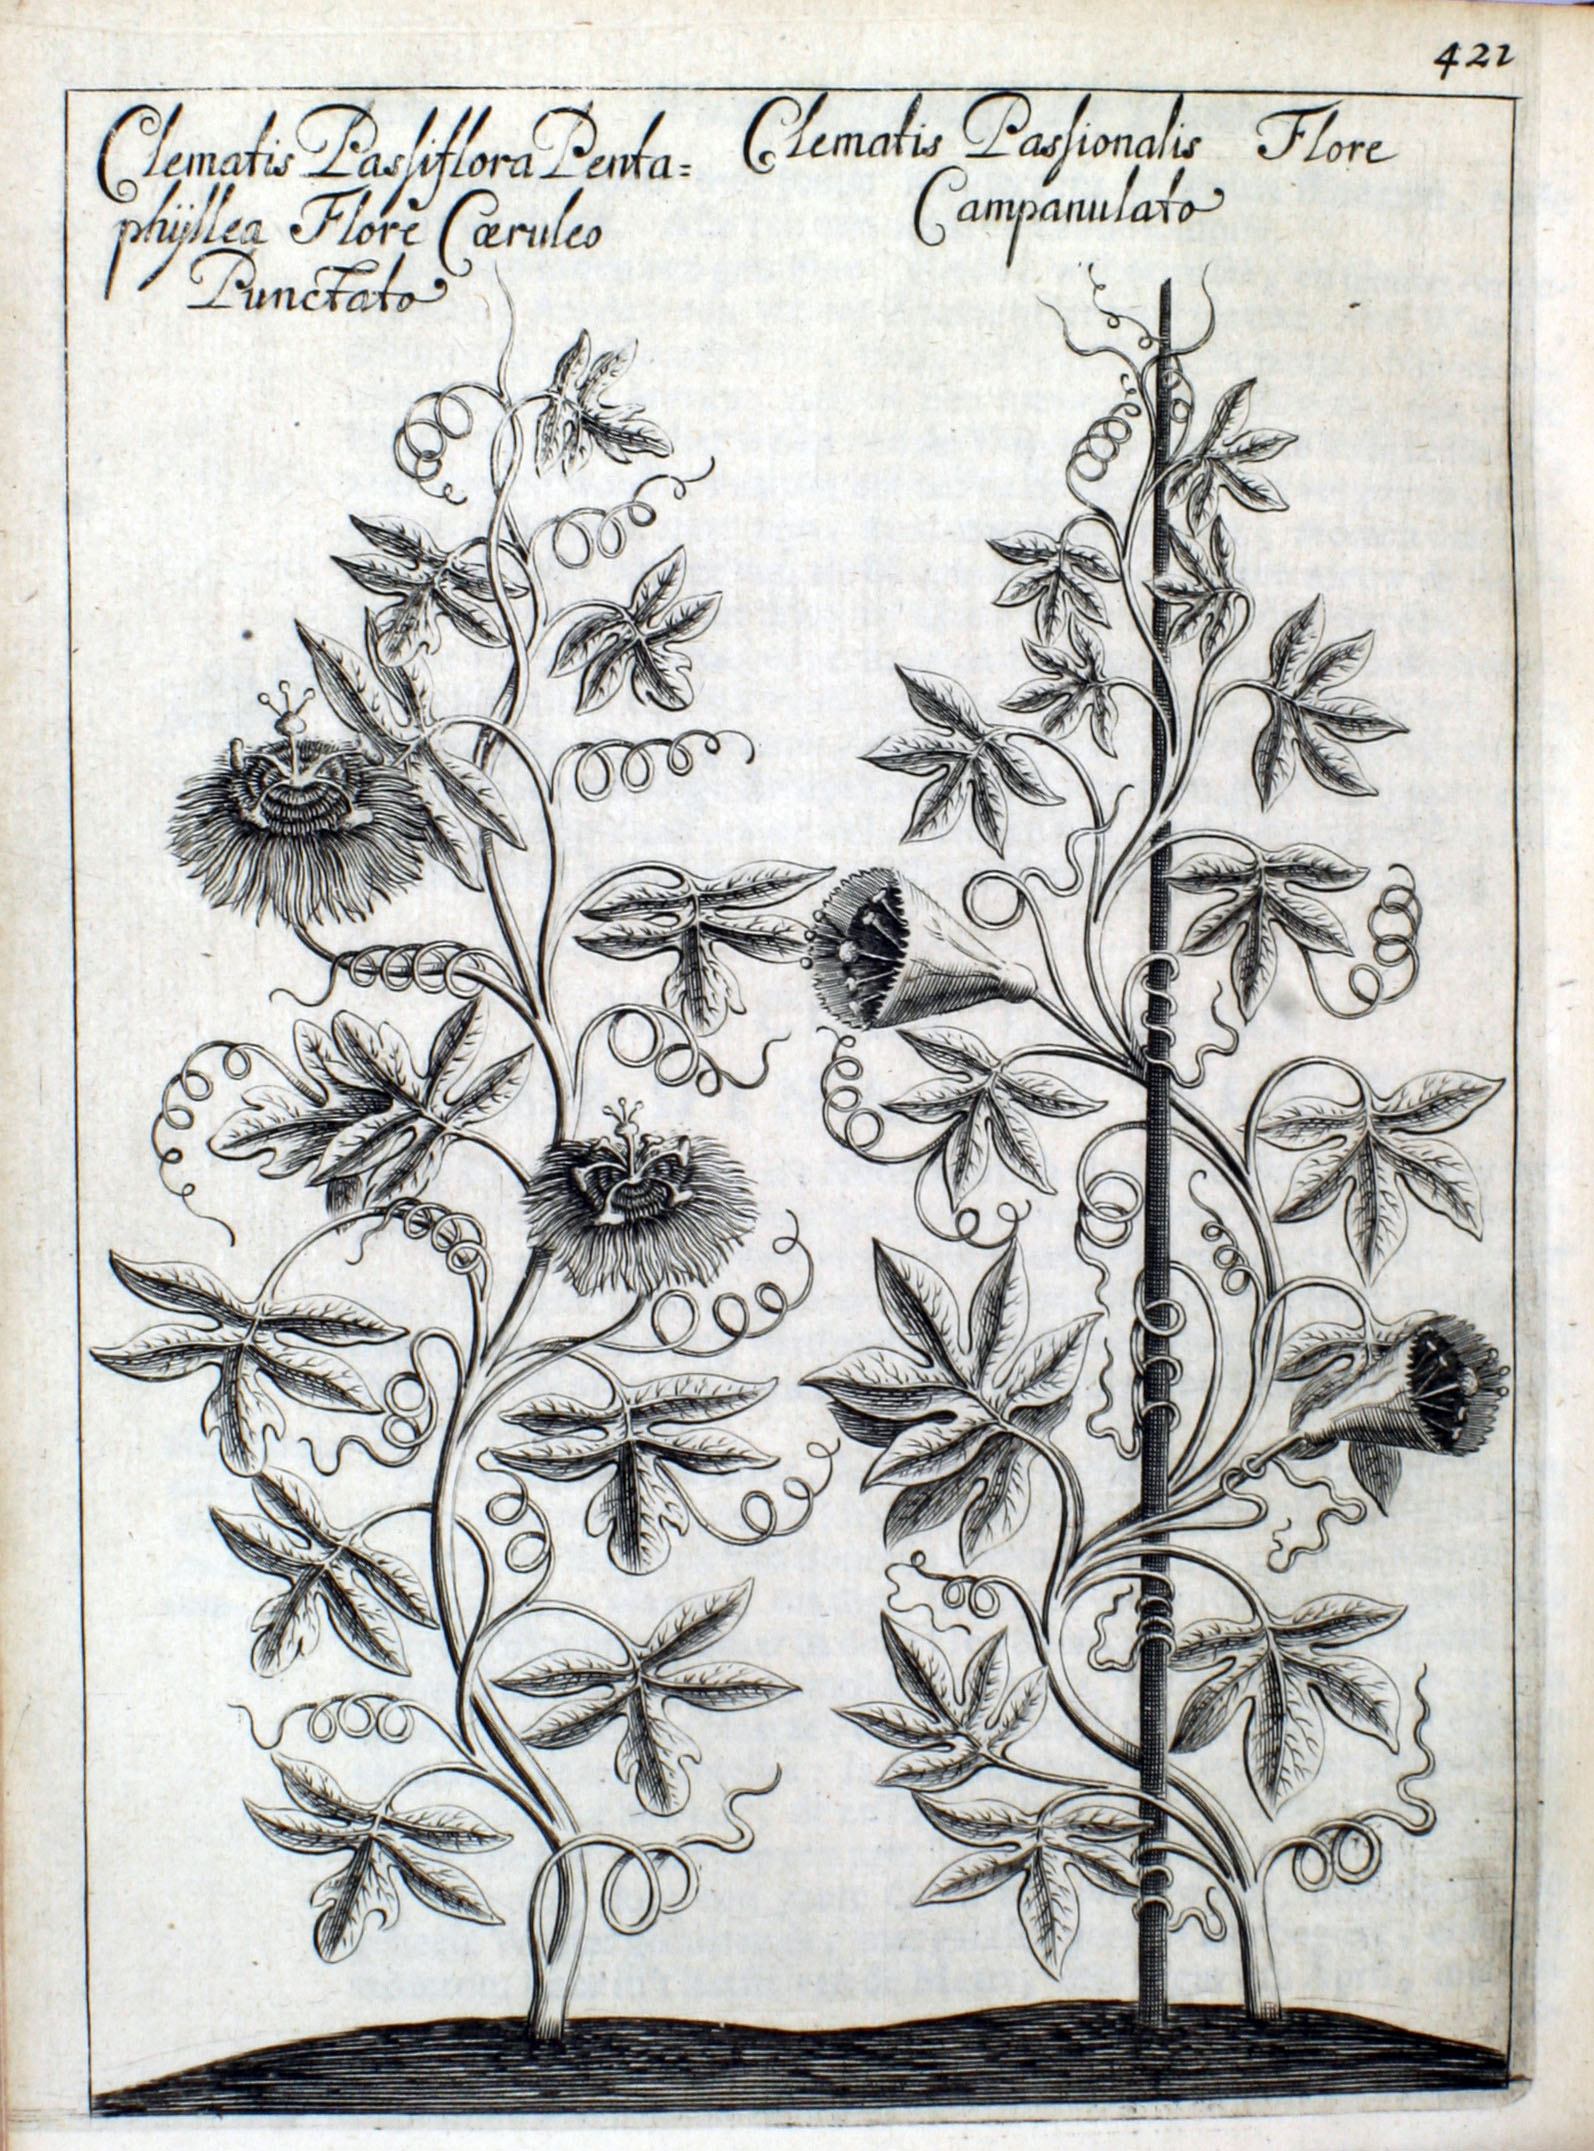 422
Clematis Paſsiflora Penta=
phÿllea Flore Cœruleo
Punctato
Clematis Paſsionalis Flore
Campanulato